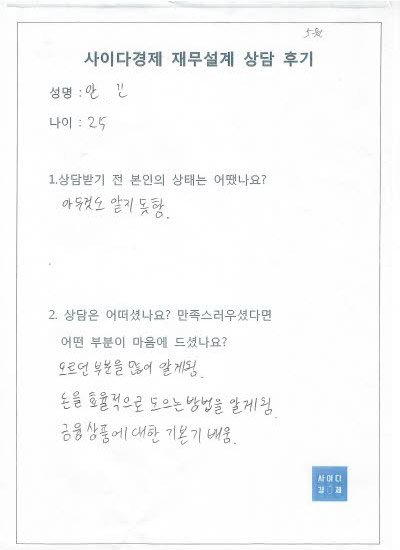 사이다경제 재무설계 상담 후기
성명 : 안
나이 : 25
1.상담받기 전 본인의 상태는 어땠나요?
아무것도 알지 못함.
2. 상담은 어떠셨나요? 만족스러우셨다면
어떤 부분이 마음에 드셨나요?
모르던 부분을 많이 알게됨.
돈을 효율적으로 모으는 방법을 알게됨.
금융상품에 대한 기본기 배움.
사이다
경제